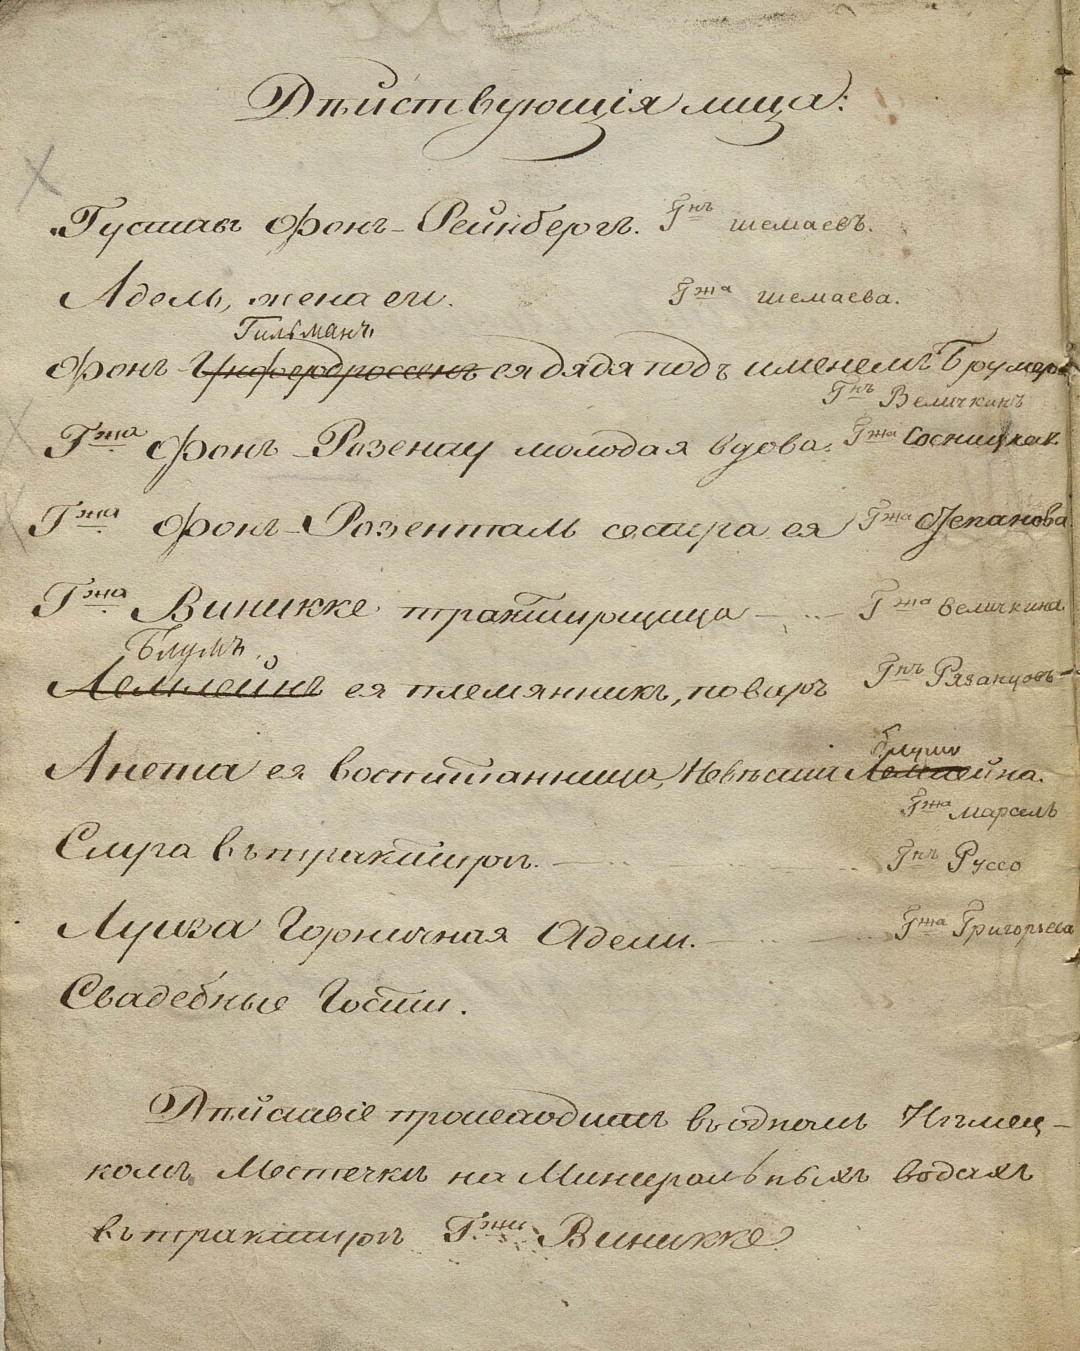 Дѣйствующія лица:
Густавъ Фонъ-Рейнбергъ. Гнъ Шемаевъ.
Адель, жена его. Гжа Шемаева.
Гильманъ
Фонъ ея дядя подъ именемъ Брумеръ
Гнъ Величкинъ
Гжа Фонъ-Розенау молодая вдова. Гжа Сосницкая.
Гжа Фонъ-Розенталь сестра ея Гжа Степанова
Гжа Виникке трактирщица Гжа Величкина
Блумъ.
Лемлейнъ ея племянникъ, поваръ Гнъ Рязанцовъ
Блума
Анета ея воспитанница, невѣста Лемлейна.
Гжа Марсель
Слуга въ трактирѣ. Гнъ Руссо
Луиза Горничная Адели. Гжа Григорьева
Свадебные Гости.
Дѣйствіе происходитъ въ одномъ Нѣмец-
комъ Местечкѣ на Минеральныхъ водахъ
въ трактирѣ Гжи Виникке.